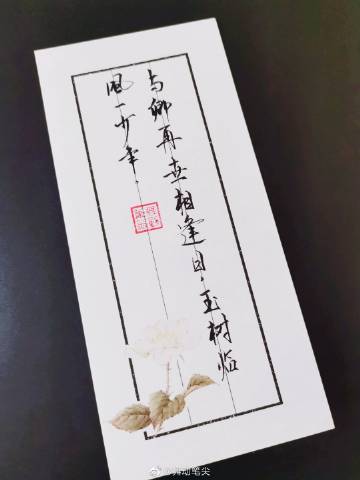 与卿再世相逢日，玉树临
风一少年。